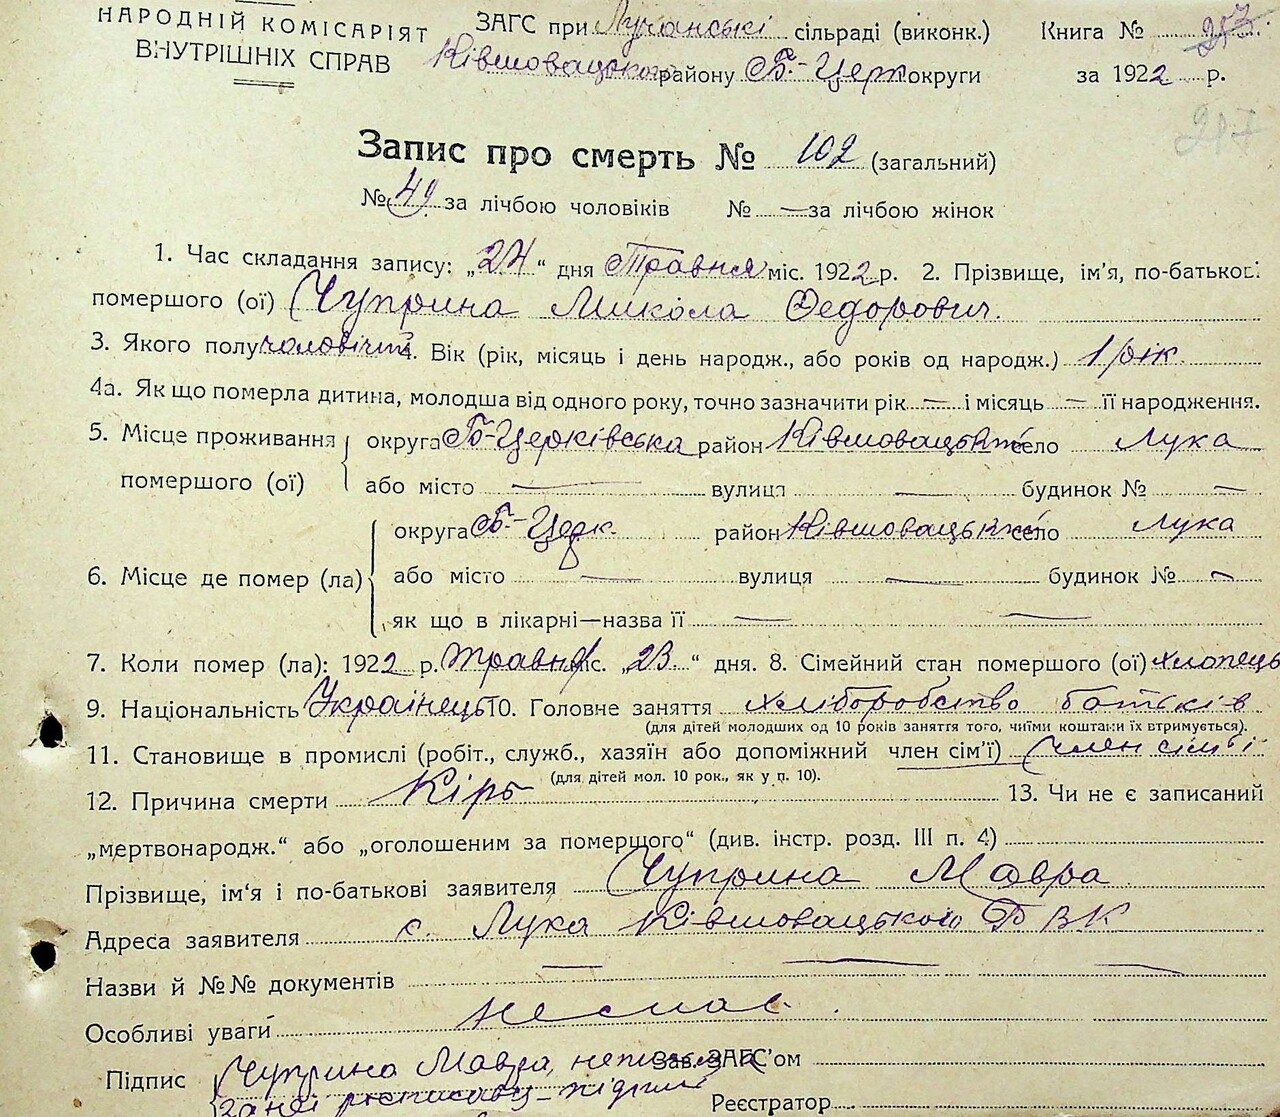 НАРОДНІЙ КОМІСАРІЯТ
ВНУТРІШНІХ СПРАВ
ЗАГС при Лучанські сільраді (виконк.) Книга №
Ківшоватського району Б.-Церк округи за 1922 р.
217
Запис про смерть № 102 (загальний)
№ 49 за лічбою чоловіків № — за лічбою жінок
1. Час складання запису: „24“ дня Травня міс. 1922 р. 2. Прізвище, ім'я, по-батькові
помершого (ої) Чуприна Микола Федорович.
3. Якого полу чоловічої 4. Вік (рік, місяць і день народж., або років од народж.) 1 рік
4а. Як що померла дитина, молодша від одного року, точно зазначити рік — і місяць — її народження.
5. Місце проживання округа Б-Церківська район Ківшовацький село Лука
помершого (ої) або місто — вулиця — будинок № —
округа Б.-Церк. район Ківшовацький село Лука
6. Місце де помер (ла) або місто — вулиця — будинок № —
як що в лікарні—назва її — —
7. Коли помер (ла): 1922 р. Травня міс. „23“ дня. 8. Сімейний стан помершого (ої) хлопець
9. Національність Українець 10. Головне заняття хліборобство батьків
(для дітей молодших од 10 років заняття того, чиїми коштами їх втримується).
11. Становище в промислі (робіт., служб., хазяїн або допоміжний член сім'ї) член сімьі
(для дітей мол. 10 рок., як у п. 10).
12. Причина смерти Кірь 13. Чи не є записаний
„мертвонародж.“ або „оголошеним за померщого“ (див. інстр. розд. III п. 4)
Прізвище, ім'я і по-батькові заявителя Чуприна Мавра
Адреса заявителя с. Лука Ківшовацького РВК
Назви й №№ документів — — —
Особливі уваги немає.
Підпис Чуприна Мавра, неписьмена Зав. ЗАГС'ом
за неї
Реєстратор